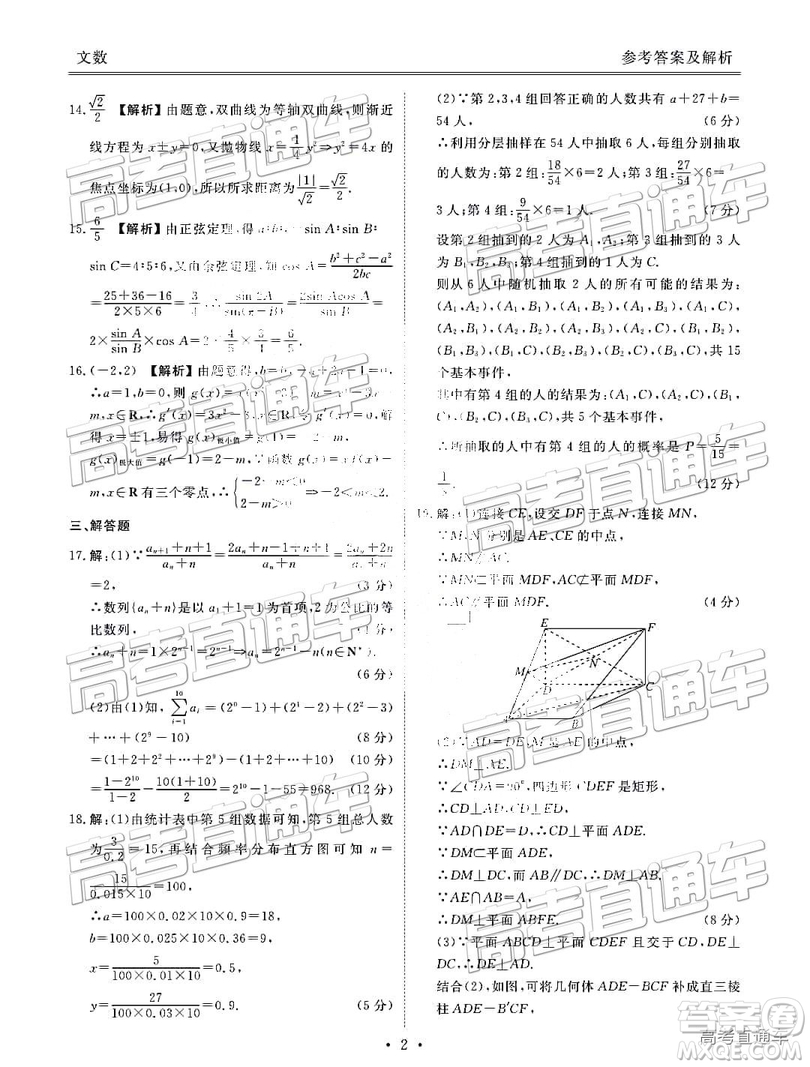 文数
参考答案及解析
14. √2/2 【解析】由题意，双曲线为等轴双曲线，则渐近
线方程为 x±y=0，又抛物线 x=1/4 y²⇒y²=4x 的
焦点坐标为(1,0)，所以所求距离为 |1|/√2=√2/2.
15. 6/5 【解析】由正弦定理，得 a∶b∶c=sin A∶sin B∶
sin C=4∶5∶6，又由余弦定理知 cos A=(b²+c²-a²)/2bc
=(25+36-16)/(2×5×6)=3/4，∴sin 2A/sin(π-B)=2sin Acos A/sin B=
2×sin A/sin B×cos A=2·4/5·3/4=6/5.
16. (-2,2) 【解析】由题意得，
∴a=1,b=0，则 g(x)=
m,x∈R，∴g′(x)=3x²-3,x∈R，
得 x=±1，易得 g(x)极小值
g(x)极大值=g(-1)=2-m，∵函数
m,x∈R 有三个零点，∴{2-m>0 -2-m<0 ⇒-2<m<2.
三、解答题
17. 解：(1)∵(aₙ₊₁+n+1)/(aₙ+n)=(2aₙ+n-1+n+1)/(aₙ+n)=(2aₙ+2n)/(aₙ+n)
=2， (3 分)
∴数列{aₙ+n}是以 a₁+1=1 为首项，2 为公比的等
比数列， (4 分)
∴aₙ+n=1×2ⁿ⁻¹=2ⁿ⁻¹，∴aₙ=2ⁿ⁻¹-n(n∈N*).
(6 分)
(2)由(1)知，∑(i=1→10) aᵢ=(2⁰-1)+(2¹-2)+(2²-3)
+…+(2⁹-10) (8 分)
=(1+2+2²+…+2⁹)-(1+2+…+10) (10 分)
=(1-2¹⁰)/(1-2)-10(1+10)/2=2¹⁰-1-55=968. (12 分)
18. 解：(1)由统计表中第 5 组数据可知，第 5 组总人数
为 3/0.2=15，再结合频率分布直方图可知 n=
15/(0.015×10)=100，
∴a=100×0.02×10×0.9=18，
b=100×0.025×10×0.36=9，
x=5/(100×0.01×10)=0.5，
y=27/(100×0.03×10)=0.9. (5 分)
(2)∵第 2,3,4 组回答正确的人数共有 a+27+b=
54 人， (6 分)
∴利用分层抽样在 54 人中抽取 6 人，每组分别抽
取的人数为：第 2 组：18/54×6=2 人；第 3 组：27/54×6=
3 人；第 4 组：9/54×6=1 人. (7 分)
设第 2 组抽到的 2 人为 A₁,A₂，第 3 组抽到的 3
人为 B₁,B₂,B₃，第 4 组抽到的 1 人为 C.
则从 6 人中随机抽取 2 人的所有可能的结果为：
(A₁,A₂),(A₁,B₁),(A₁,B₂),(A₁,B₃),(A₁,C),
(A₂,B₁),(A₂,B₂),(A₂,B₃),(A₂,C),(B₁,B₂),
(B₁,B₃),(B₁,C),(B₂,B₃),(B₂,C),(B₃,C),共 15
个基本事件，
其中有第 4 组的人的结果为：(A₁,C),(A₂,C),
(B₁,C),(B₂,C),(B₃,C),共 5 个基本事件，
∴所抽取的人中有第 4 组的人的概率是 P=5/15=
1/3. (12 分)
19. 解：(1)连接 CE，设交 DF 于点 N，连接 MN，
∵M、N 分别是 AE、CE 的中点，
∴MN∥AC，
∵MN⊂平面 MDF，AC⊄平面 MDF，
∴AC∥平面 MDF. (4 分)
E
F
M
N
D
C
B
(2)∵AD=DE，M 是 AE 的中点，
∴DM⊥AE.
∵∠CDA=90°，四边形 CDEF 是矩形，
∴CD⊥AD，CD⊥DE，
∵AD∩DE=D，∴CD⊥平面 ADE.
∵DM⊂平面 ADE，∴CD⊥DM，
∵AB∥CD，∴DM⊥AB，
∵AE∩AB=A，
∴DM⊥平面 ABFE. (8 分)
(3)∵平面 ABCD⊥平面 CDEF 且交线为 CD，
DE⊥CD，∴DE⊥平面 ABCD，
结合(2)，如图，可将几何体 ADE-BCF 补成直三棱
柱 ADE-B′CF，
• 2 •
高考直通车
答案圈
MXQE.COM